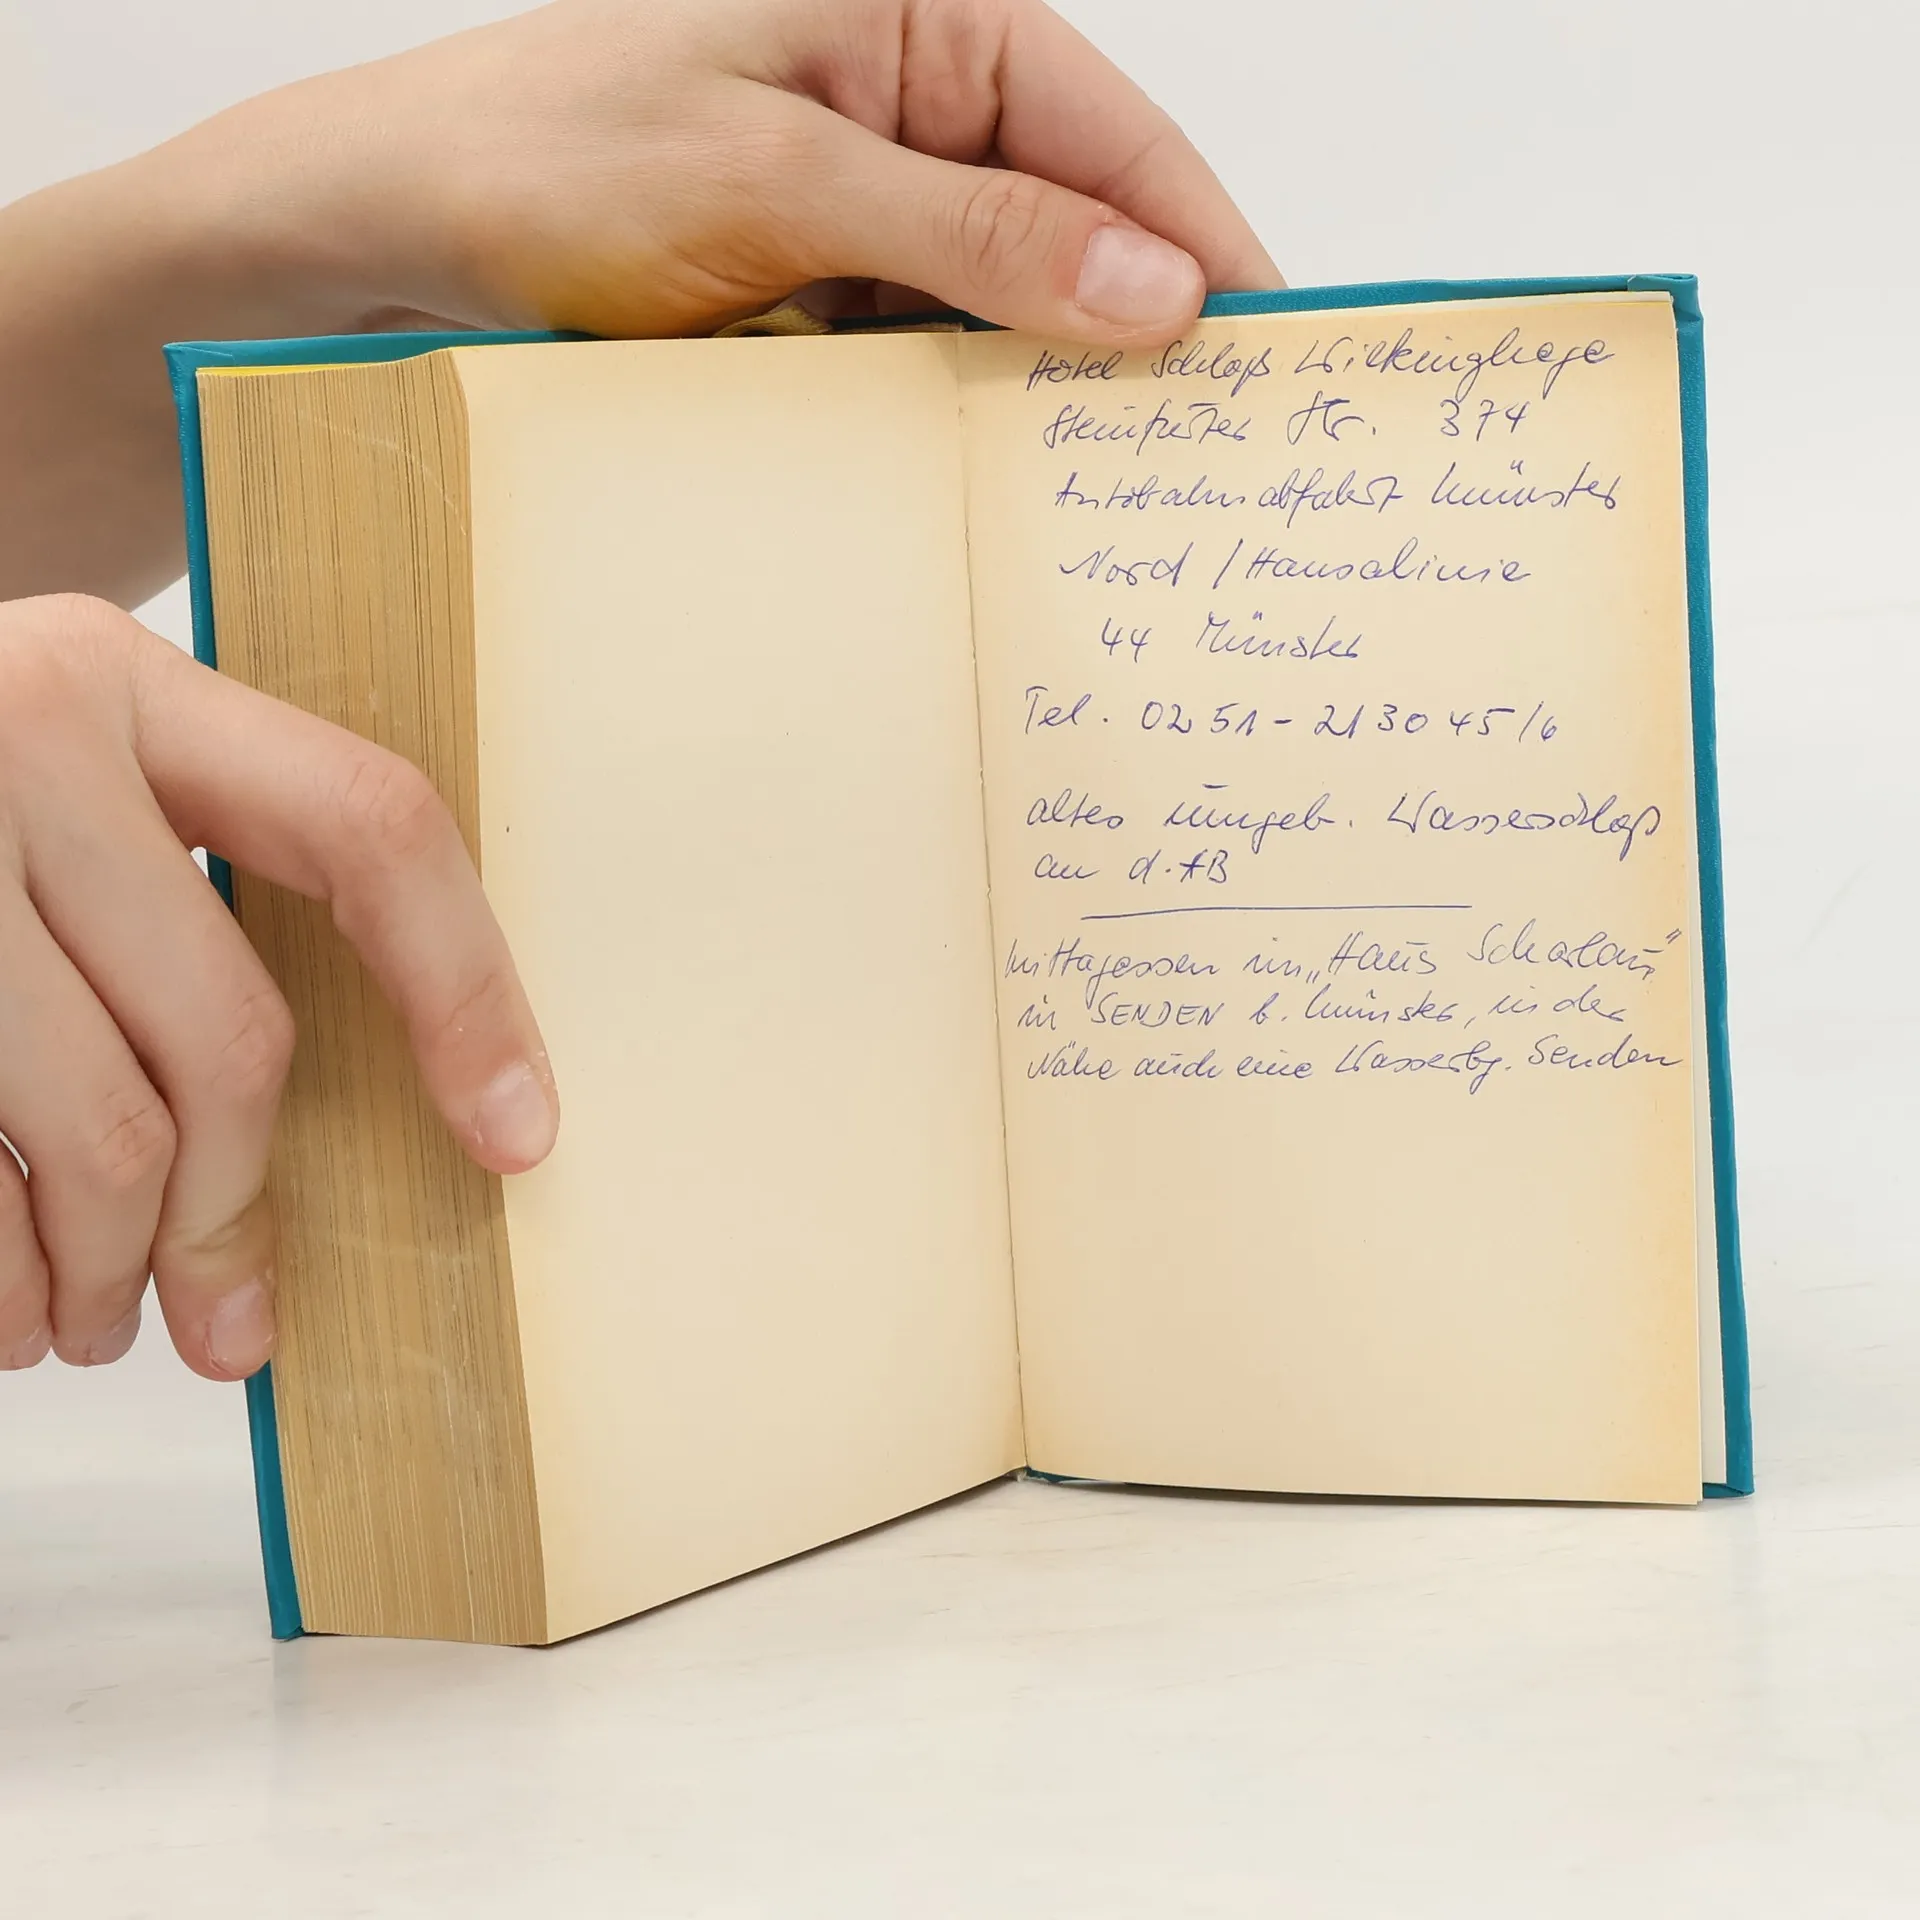 Hotel Schloß Wilkinghege
Steinfurter Str. 374
Autobahnabfahrt Münster
Nord / Hansalinie
44 Münster
Tel. 02 51 - 21 30 45/6
altes umgeb. Wasserschloß
an d. AB
Mittagessen im „Haus Scharlau"
in SENDEN b. Münster, in der
Nähe auch eine Wasserbg. Senden